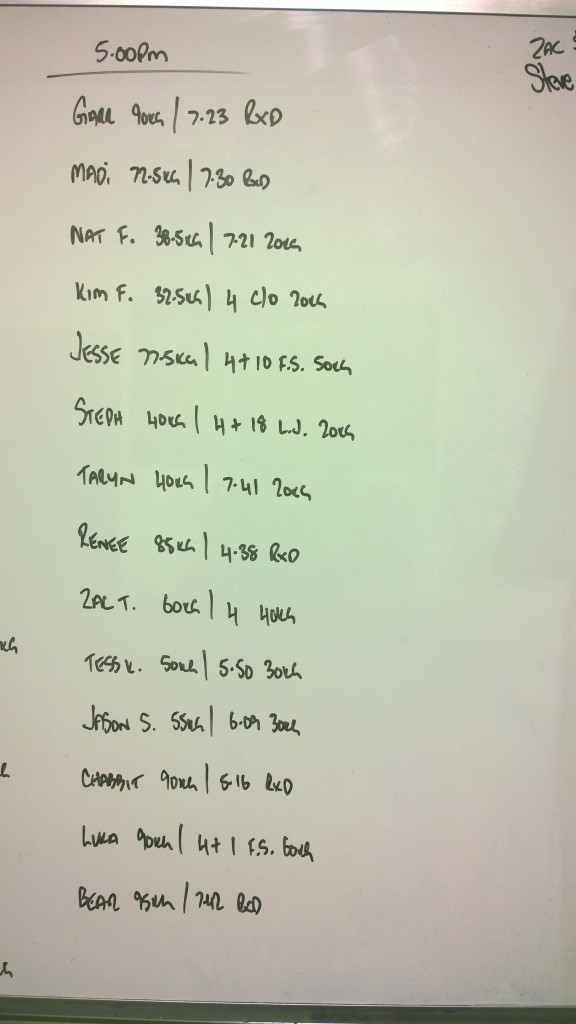 5.00pm
ZAC
Steve
90KG | 7.23 RxD
MADI 72.5KG | 7.30 RxD
NAT F. 38.5KG | 7.21 20KG
KIM F. 32.5KG | 4 C/O 20KG
JESSE 77.5KG | 4+10 F.S. 50KG
STEPH 40KG | 4+18 L.J. 20KG
TARYN 40KG | 7.41 20KG
RENEE 85KG | 4.38 RxD
ZAC T. 60KG | 4 40KG
TESS K. 50KG | 5.50 30KG
JASON S. 55KG | 6.09 30KG
CHABBIT 90KG | 5.16 RxD
LUKA 90KG | 4+1 F.S. 60KG
BEAR 95KG | RxD